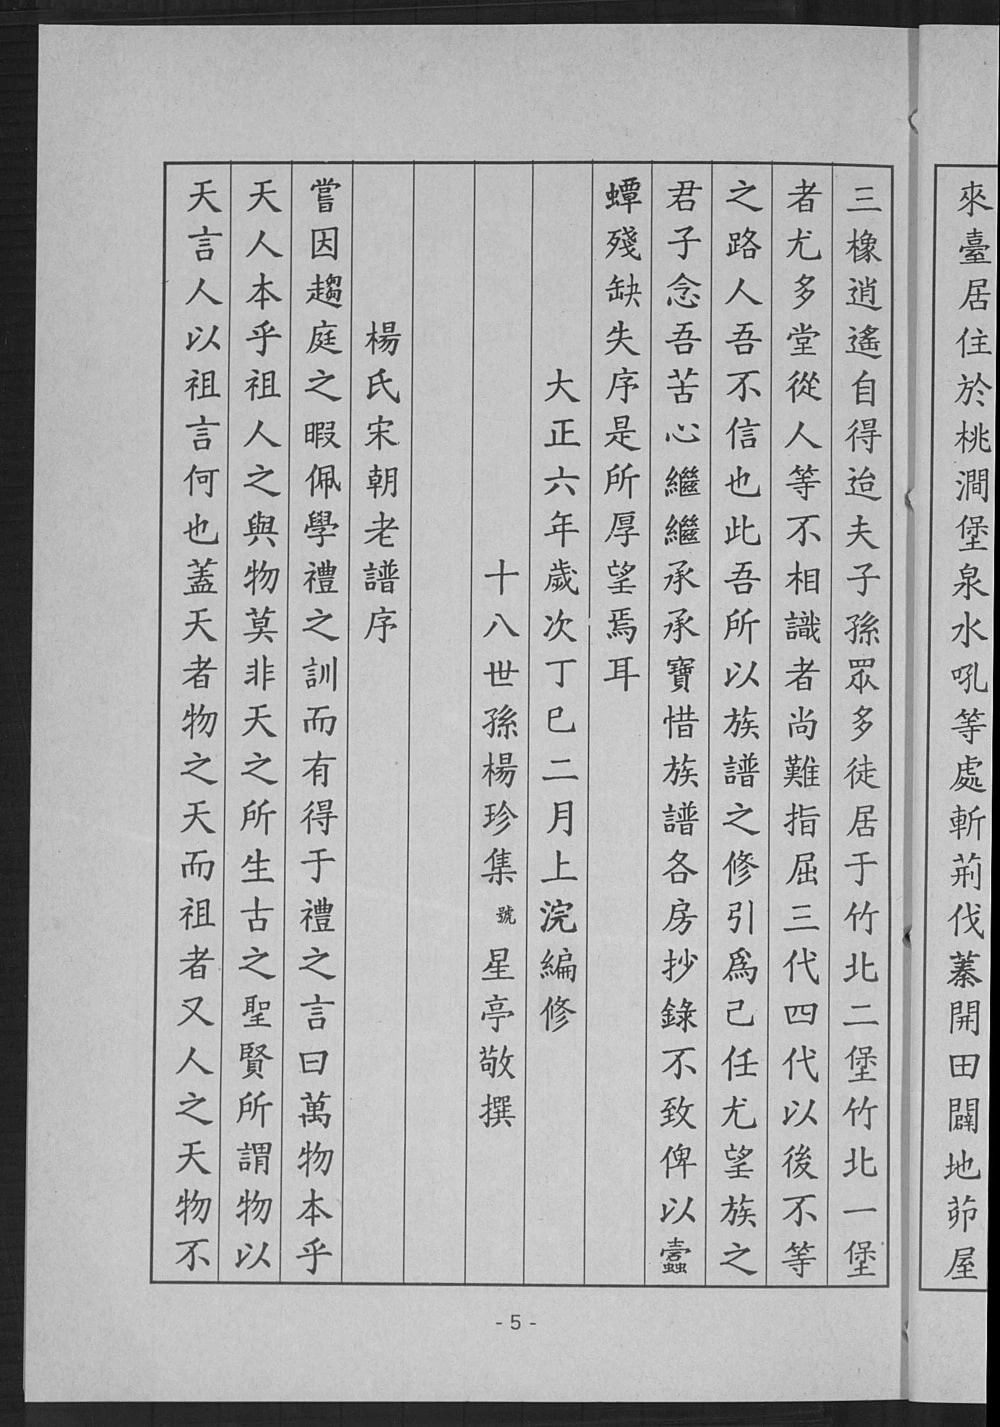 來臺居住於桃澗堡泉水吼等處斬荊伐蓁開田闢地茆屋
三橡逍遙自得迨夫子孫眾多徒居于竹北二堡竹北一堡
者尤多堂從人等不相識者尚難指屈三代四代以後不等
之路人吾不信也此吾所以族譜之修引爲己任尤望族之
君子念吾苦心繼繼承承寶惜族譜各房抄錄不致俾以蠹
蟫殘缺失序是所厚望焉耳
大正六年歲次丁巳二月上浣編修
十八世孫楊珍集號星亭敬撰
楊氏宋朝老譜序
嘗因趨庭之暇佩學禮之訓而有得于禮之言曰萬物本乎
天人本乎祖人之與物莫非天之所生古之聖賢所謂物以
天言人以祖言何也蓋天者物之天而祖者又人之天物不
- 5 -